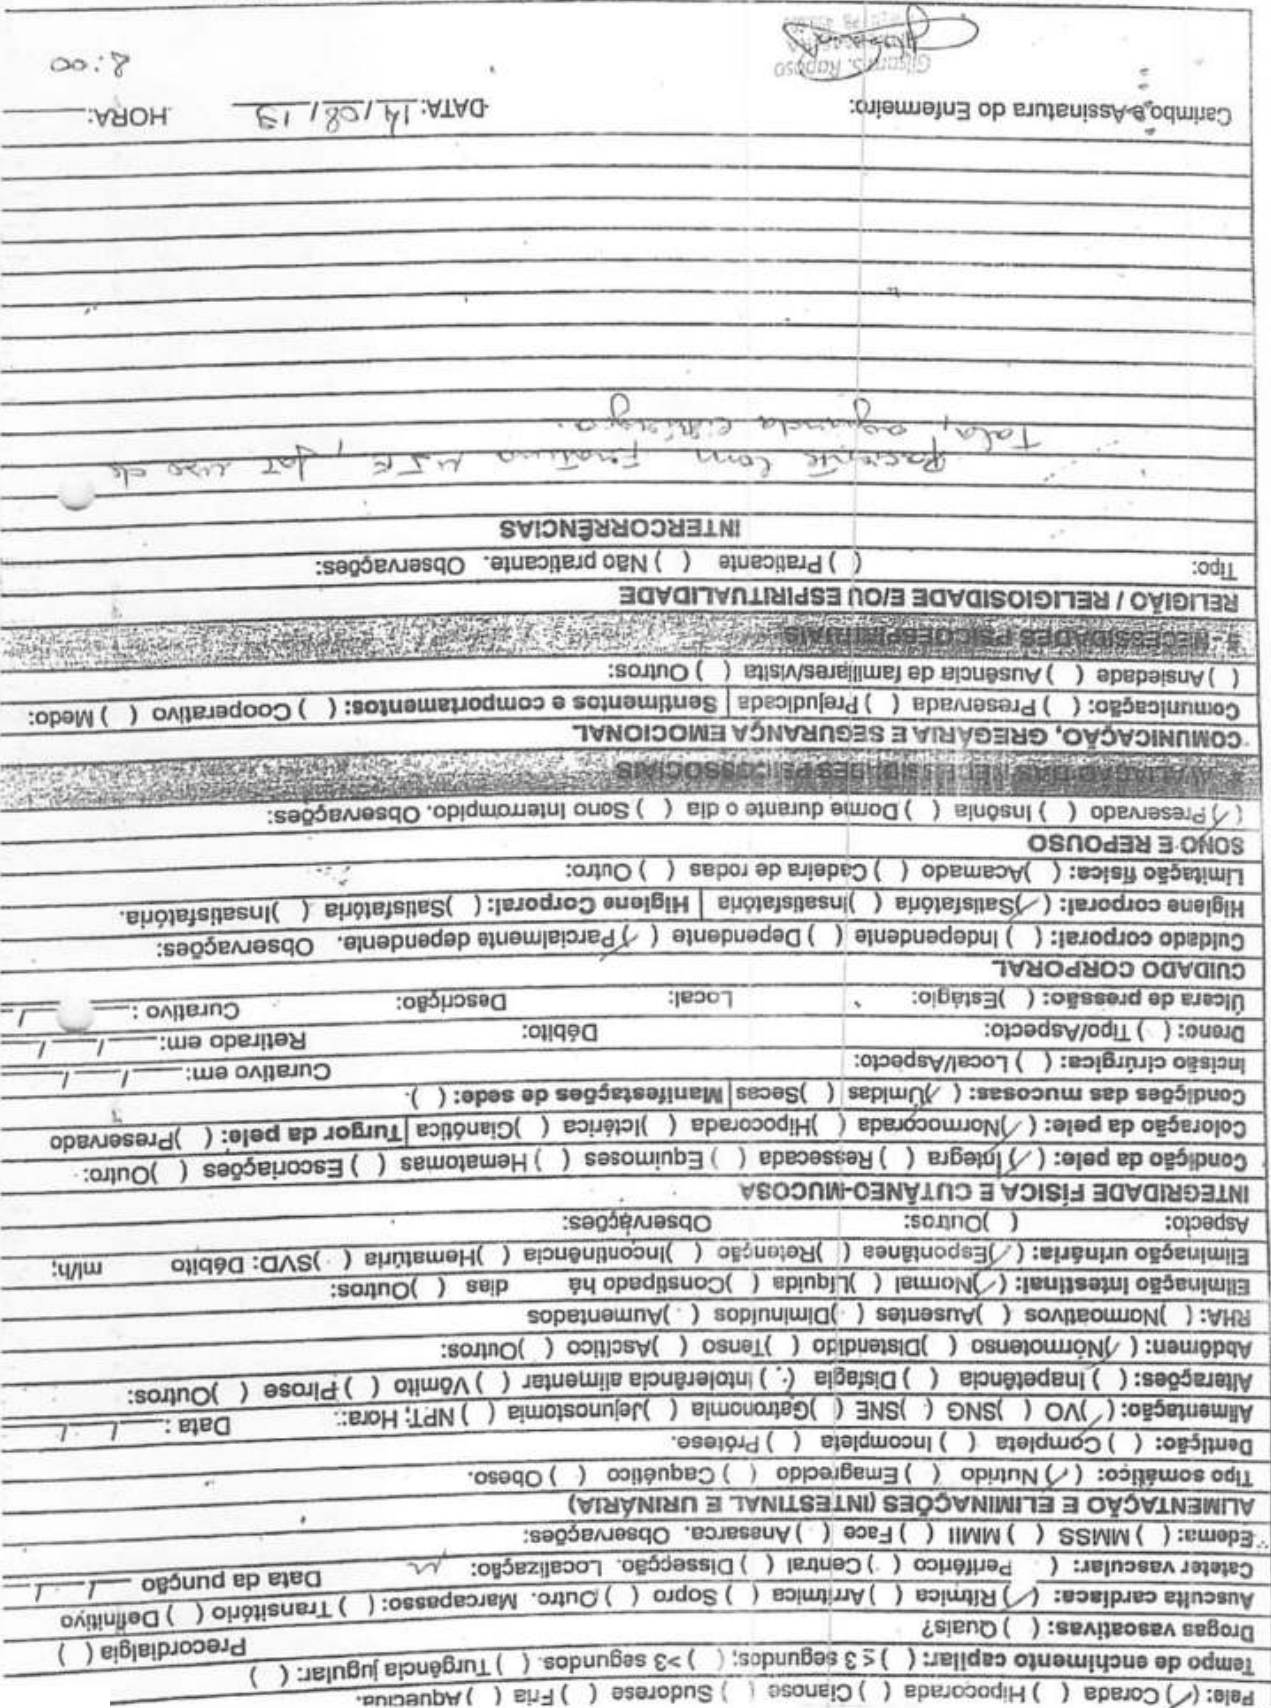 Pele: (✓) Corada ( ) Hipocorada ( ) Cianose ( ) Sudorese ( ) Fria ( ) Aquecida.
Tempo de enchimento capilar: ( ) ≤ 3 segundos; ( ) >3 segundos. ( ) Turgência jugular: ( )
Drogas vasoativas: ( ) Quais? Precordialgia ( )
Ausculta cardíaca: (✓) Rítmica ( ) Arrítmica ( ) Sopro ( ) Outro. Marcapasso: ( ) Transitório ( ) Definitivo
Cateter vascular: ( ) Periférico ( ) Central ( ) Dissecção. Localização: Data da punção __/__/__
Edema: ( ) MMSS ( ) MMII ( ) Face ( ) Anasarca. Observações:
ALIMENTAÇÃO E ELIMINAÇÕES (INTESTINAL E URINÁRIA)
Tipo somático: (✓) Nutrido ( ) Emagrecido ( ) Caquético ( ) Obeso.
Dentição: ( ) Completa ( ) Incompleta ( ) Prótese.
Alimentação: (✓) VO ( ) SNG ( ) SNE ( ) Gatronomia ( ) Jejunostomia ( ) NPT; Hora: Data : __/__/__
Alterações: ( ) Inapetência ( ) Disfagia ( ) Intolerância alimentar ( ) Vômito ( ) Pirose ( ) Outros:
Abdômen: (✓) Nórmotenso ( ) Distendido ( ) Tenso ( ) Ascítico ( ) Outros:
RHA: ( ) Normoativos ( ) Ausentes ( ) Diminuídos ( ) Aumentados
Eliminação intestinal: (✓) Normal ( ) Líquida ( ) Constipado há dias ( ) Outros:
Eliminação urinária: (✓) Espontânea ( ) Retenção ( ) Incontinência ( ) Hematúria ( ) SVD: Débito ml/h;
Aspecto: ( ) Outros: Observações:
INTEGRIDADE FÍSICA E CUTÂNEO-MUCOSA
Condição da pele: (✓) Íntegra ( ) Ressecada ( ) Equimoses ( ) Hematomas ( ) Escoriações ( ) Outro:
Coloração da pele: (✓) Normocorada ( ) Hipocorada ( ) Ictérica ( ) Cianótica Turgor da pele: ( ) Preservado
Condições das mucosas: (✓) Úmidas ( ) Secas Manifestações de sede: ( ).
Incisão cirúrgica: ( ) Local/Aspecto: Curativo em: __/__/__
Dreno: ( ) Tipo/Aspecto: Débito: Retirado em: __/__/__
Úlcera de pressão: ( ) Estágio: Local: Descrição: Curativo : __/
CUIDADO CORPORAL
Cuidado corporal: ( ) Independente ( ) Dependente (✓) Parcialmente dependente. Observações:
Higiene corporal: (✓) Satisfatória ( ) Insatisfatória Higiene Corporal: ( ) Satisfatória ( ) Insatisfatória.
Limitação física: ( ) Acamado ( ) Cadeira de rodas ( ) Outro:
SONO E REPOUSO
(✓) Preservado ( ) Insônia ( ) Dorme durante o dia ( ) Sono Interrompido. Observações:
AVALIAÇÃO DAS NECESSIDADES PSICOSSOCIAIS
COMUNICAÇÃO, GREGÁRIA E SEGURANÇA EMOCIONAL
Comunicação: ( ) Preservada ( ) Prejudicada Sentimentos e comportamentos: ( ) Cooperativo ( ) Medo:
( ) Ansiedade ( ) Ausência de familiares/visita ( ) Outros:
- NECESSIDADES PSICOESPIRITUAIS
RELIGIÃO / RELIGIOSIDADE E/OU ESPIRITUALIDADE
Tipo: ( ) Praticante ( ) Não praticante. Observações:
INTERCORRÊNCIAS
Paciente com MJE, faz uso de
Tala, aguarda cirurgia.
Carimbo e Assinatura do Enfermeiro: DATA: 14/08/19 HORA:
Gilson S. Raposo 8:00